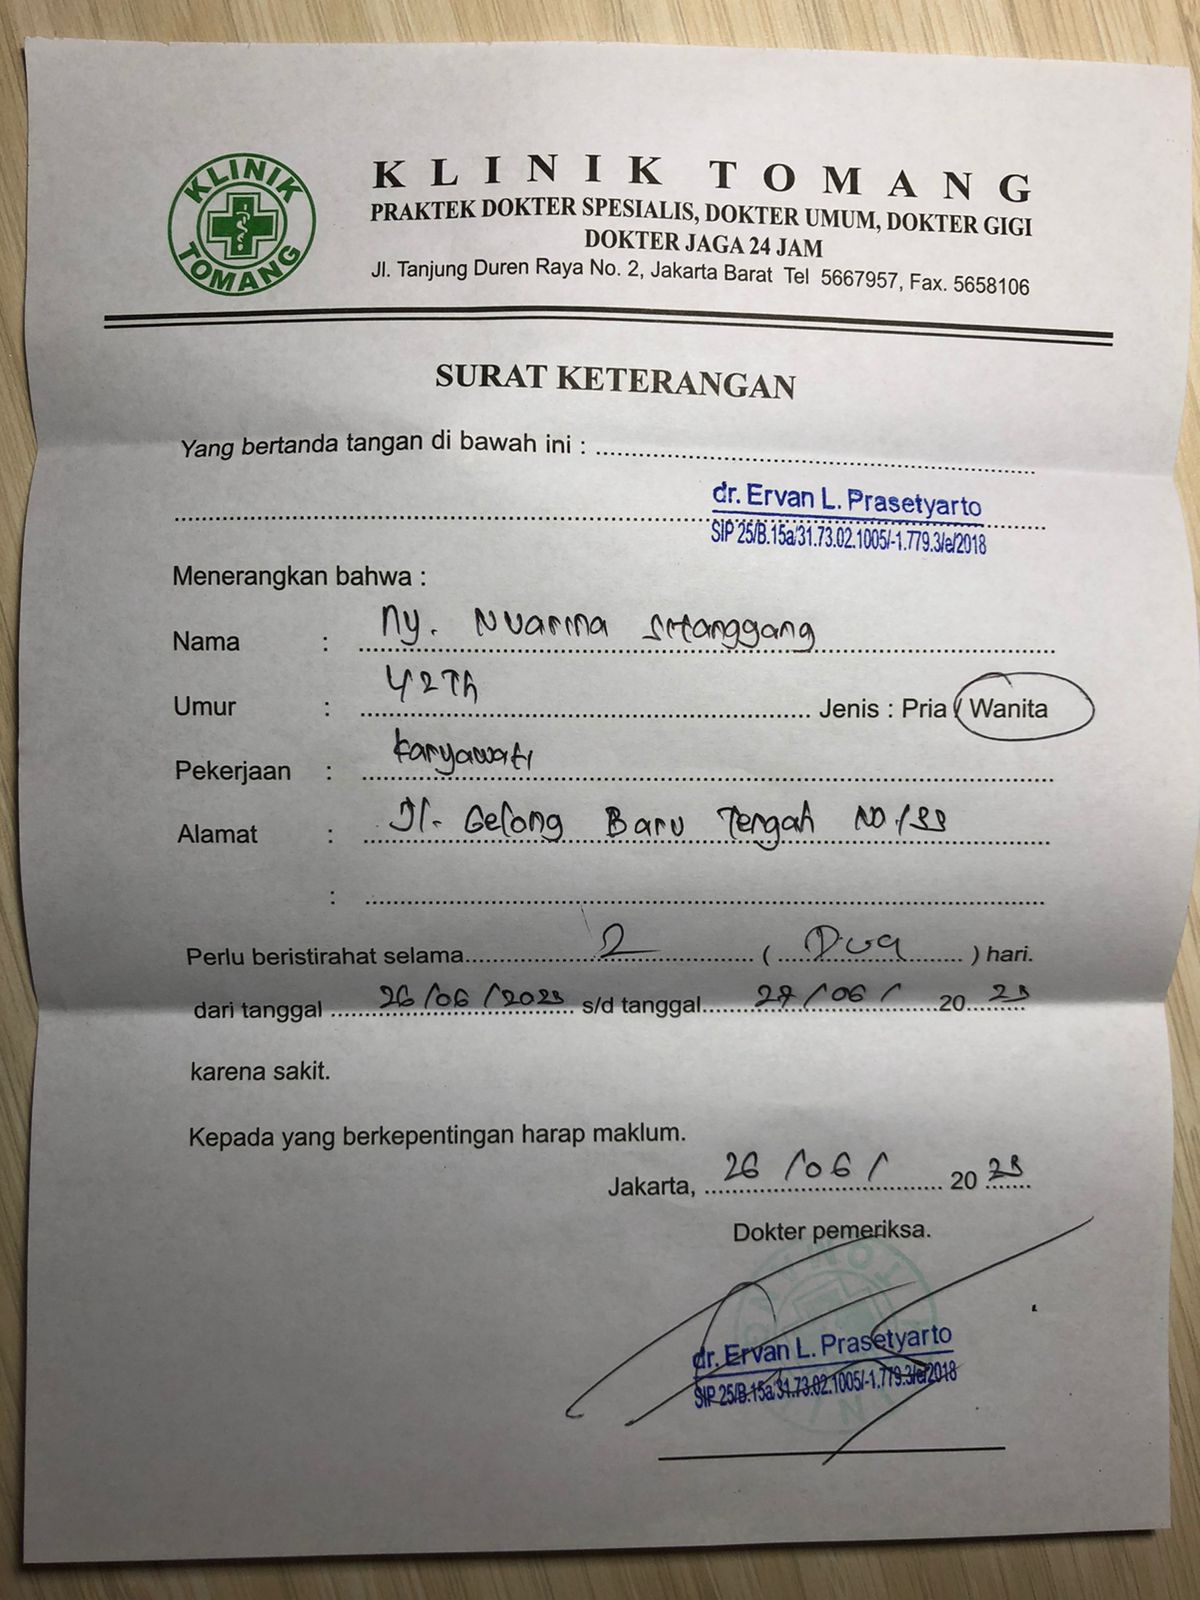 KLINIK TOMANG
KLINIK TOMANG
PRAKTEK DOKTER SPESIALIS, DOKTER UMUM, DOKTER GIGI
DOKTER JAGA 24 JAM
Jl. Tanjung Duren Raya No. 2, Jakarta Barat Tel 5667957, Fax. 5658106
SURAT KETERANGAN
Yang bertanda tangan di bawah ini :
dr. Ervan L. Prasetyarto
SIP 25/B.15a/31.73.02.1005/-1.779.3/e/2018
Menerangkan bahwa :
Nama : Ny. Nuarina Sitanggang
Umur : 42 Th Jenis : Pria / Wanita
Pekerjaan : Karyawati
Alamat : Jl. Gelong Baru Tengah
:
Perlu beristirahat selama 2 ( Dua ) hari.
dari tanggal 26/06/2023 s/d tanggal 27/06/ 20 23
karena sakit.
Kepada yang berkepentingan harap maklum.
Jakarta, 26/06/ 20 23
Dokter pemeriksa.
dr. Ervan L. Prasetyarto
SIP 25/B.15a/31.73.02.1005/-1.779.3/e/2018